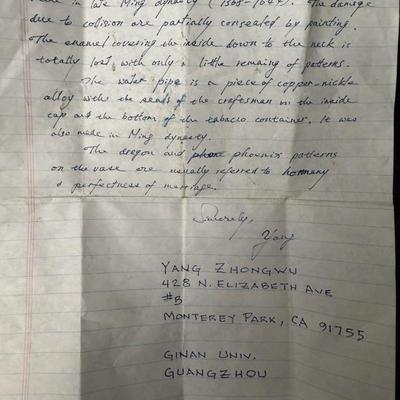 in late Ming dynasty (1568-1644). The damage
due to collision are partially consealed by painting.
The enamel covering the inside down to the neck is
totally lost with only a little remaing of patterns.
The water pipe is a piece of copper-nickle
alloy with the seals of the craftsman in the inside
cap and the bottom of the tabacco container. It was
also made in Ming dynasty.
The dragon and phoenix patterns
on the vase are usually referred to homony
& perfectness of marriage.
Sincerely,
Yang
YANG ZHONGWU
428 N. ELIZABETH AVE
#B
MONTEREY PARK, CA 91755
GINAN UNIV.
GUANGZHOU